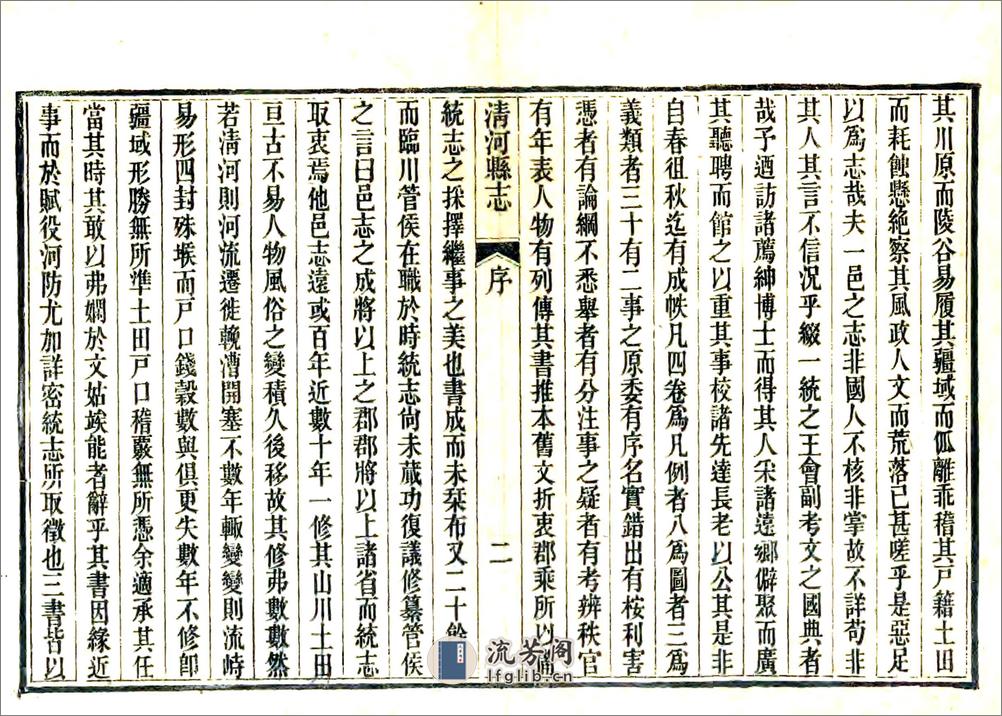 其川原而陵谷易履其疆域而㼌離乖稽其戸籍土田
而耗蝕懸絶察其風政人文而荒落已甚嗟乎是惡足
以爲志哉夫一邑之志非國人不核非掌故不詳苟非
其人其言不信況乎綴一統之王會副考文之國典者
哉予迺訪諸薦紳博士而得其人采諸遠鄉僻聚而廣
其聽聘而館之以重其事校諸先達長老以公其是非
自春徂秋迄有成帙凡四卷爲凡例者八爲圖者三爲
義類者三十有二事之原委有序名實錯出有桉利害
憑者有論綱不悉舉者有分注事之疑者有考辨秩官
有年表人物有列傳其書推本舊文折衷郡乘所以備
清河縣志
序
二
統志之採擇繼事之美也書成而未栞布又二十餘
而臨川管侯在職於時統志尙未蕆功復議修纂管侯
之言曰邑志之成將以上之郡郡將以上諸省而統志
取衷焉他邑志遠或百年近數十年一修其山川土田
亘古不易人物風俗之變積久後移故其修弗數數然
若淸河則河流遷徙輓漕開塞不數年輙變變則流峙
易形四封殊堠而戸口錢糓數與俱更失數年不修卽
疆域形勝無所準土田戸口稽覈無所憑余適承其任
當其時其敢以弗嫻於文姑竢能者辭乎其書因緣近
事而於賦役河防尤加詳密統志所取徵也三書皆以
流芳阁
lfglib.cn